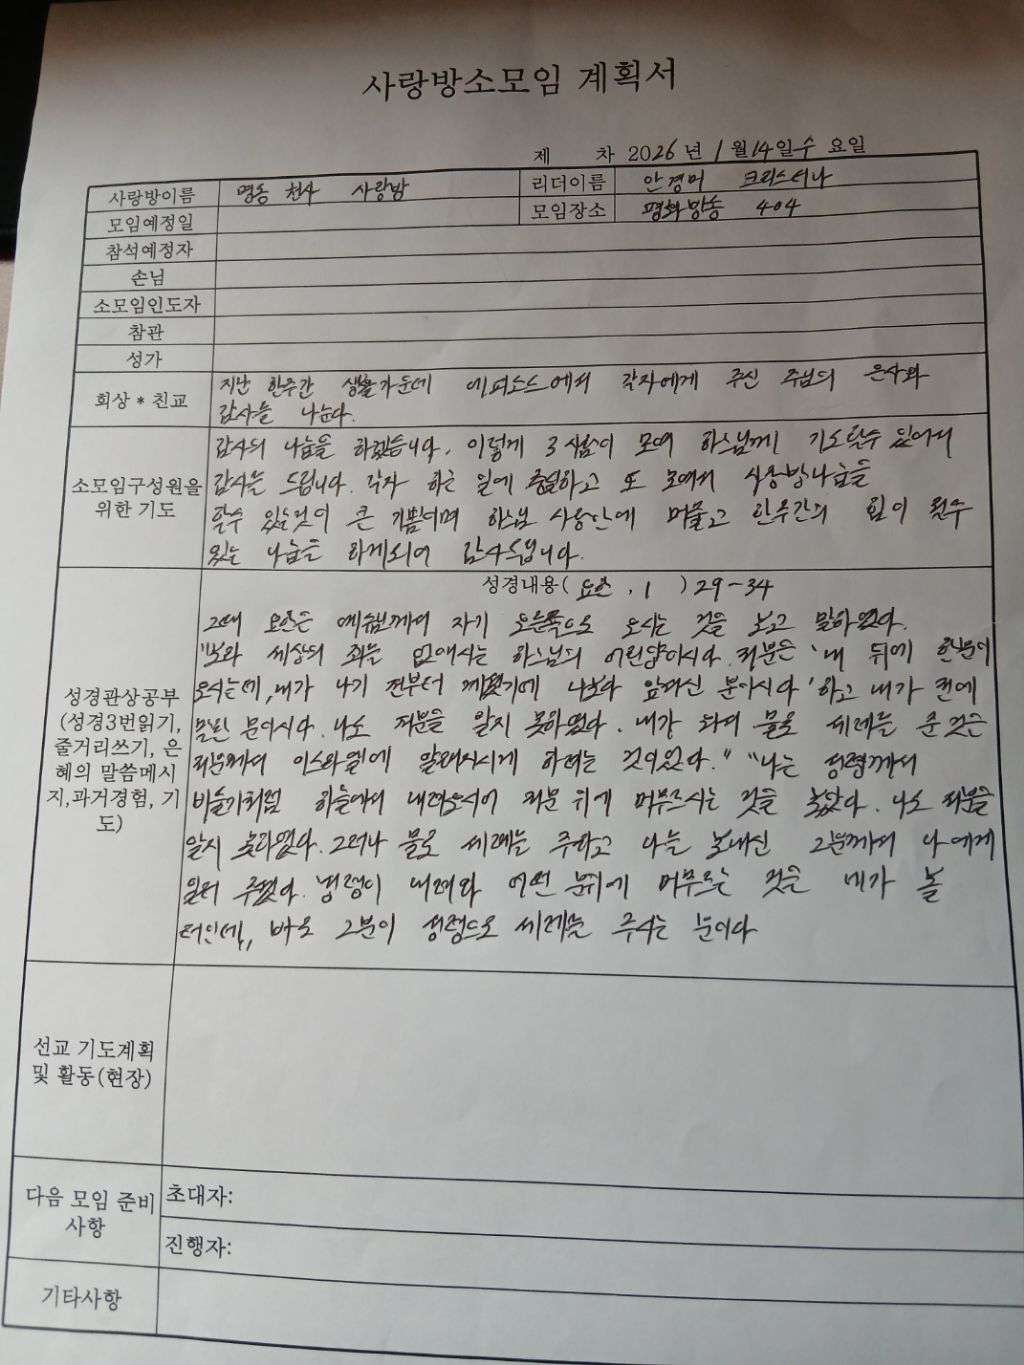 사랑방소모임 계획서
제 차 2026년 1월 14일 수 요일
사랑방이름 명동 천사 사랑방 리더이름 안경미 크리스티나
모임예정일 모임장소 평화방송 404
참석예정자
손님
소모임인도자
참관
성가
회상 * 친교
지난 한주간 생활가운데 에피소드에서 각자에게 주신 주님의 은사와
감사를 나눈다.
소모임구성원을
위한 기도
감사의 나눔을 하겠습니다. 이렇게 3사람이 모여 하느님께 기도할수 있어서
감사를 드립니다. 각자 하는 일에 충실하고 또 모여서 사랑방나눔을
할수 있는것이 큰 기쁨이며 하느님 사랑안에 머물고 한주간의 힘이 될수
있는 나눔을 하게되어 감사드립니다.
성경관상공부
(성경3번읽기,
줄거리쓰기, 은
혜의 말씀메시
지,과거경험, 기
도)
성경내용( 요한 , 1 ) 29-34
그때 요한은 예수님께서 자기 쪽으로 오시는 것을 보고 말하였다.
"보라 세상의 죄를 없애시는 하느님의 어린양이시다. 저분은 '내 뒤에 한분이
오시는데, 내가 나기 전부터 계셨기에 나보다 앞서신 분이시다' 하고 내가 전에
말한 분이시다. 나도 저분을 알지 못하였다. 내가 와서 물로 세례를 준 것은
저분께서 이스라엘에 알려지시게 하려는 것이었다." "나는 성령께서
비둘기처럼 하늘에서 내려오시어 저분 위에 머무르시는 것을 보았다. 나도 저분을
알지 못하였다. 그러나 물로 세례를 주라고 나를 보내신 그분께서 나에게
일러 주셨다. '성령이 내려와 어떤 분위에 머무르는 것을 네가 볼
터인데, 바로 그분이 성령으로 세례를 주시는 분이다
선교 기도계획
및 활동(현장)
다음 모임 준비
사항
초대자:
진행자:
기타사항